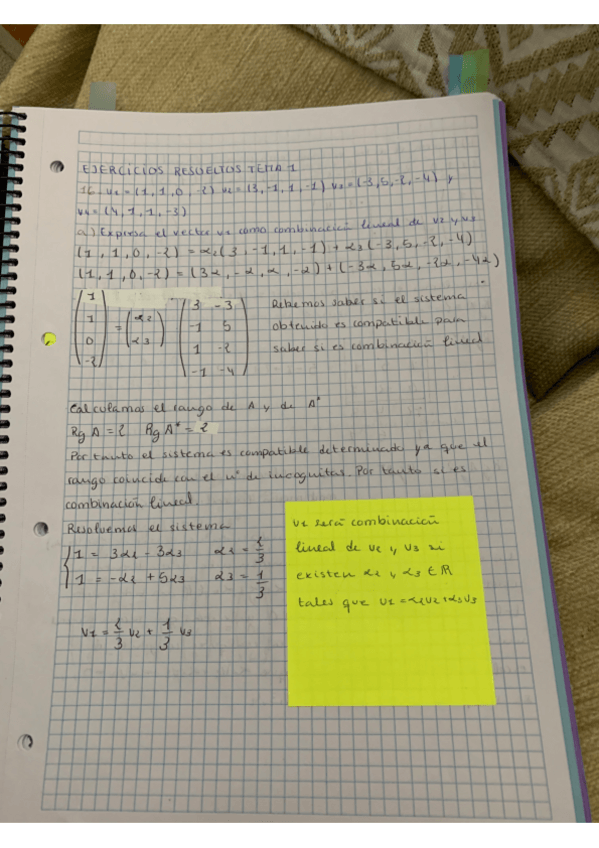 EJERCICIOS RESUELTOS TEMA 1
16. v1 = (1, 1, 0, -2) v2 = (3, -1, 1, -1) v3 = (-3, 5, -2, -4) y
v4 = (4, 1, 1, -3)
a) Expresa el vector v1 como combinación lineal de v2 y v3
(1, 1, 0, -2) = α2(3, -1, 1, -1) + α3(-3, 5, -2, -4)
(1, 1, 0, -2) = (3α, -α, α, -α) + (-3α, 5α, -2α, -4α)
1 3 -3 Debemos saber si el sistema
1 = (α2 -1 5 obtenido es compatible para
0 α3) 1 2 saber si es combinación lineal
-2 -1 -4
Calculamos el rango de A y de A*
Rg A = 2 Rg A* = 2
Por tanto el sistema es compatible determinado ya que el
rango coincide con el nº de incognitas. Por tanto si es
combinación lineal.
Resolvemos el sistema
1 = 3α2 - 3α3 α2 = 2/3
1 = -α2 + 5α3 α3 = 1/3
v1 = 2/3 v2 + 1/3 v3
v1 será combinación
lineal de v2 y v3 si
existen α2 y α3 ∈ ℝ
tales que v1 = α2v2 + α3v3